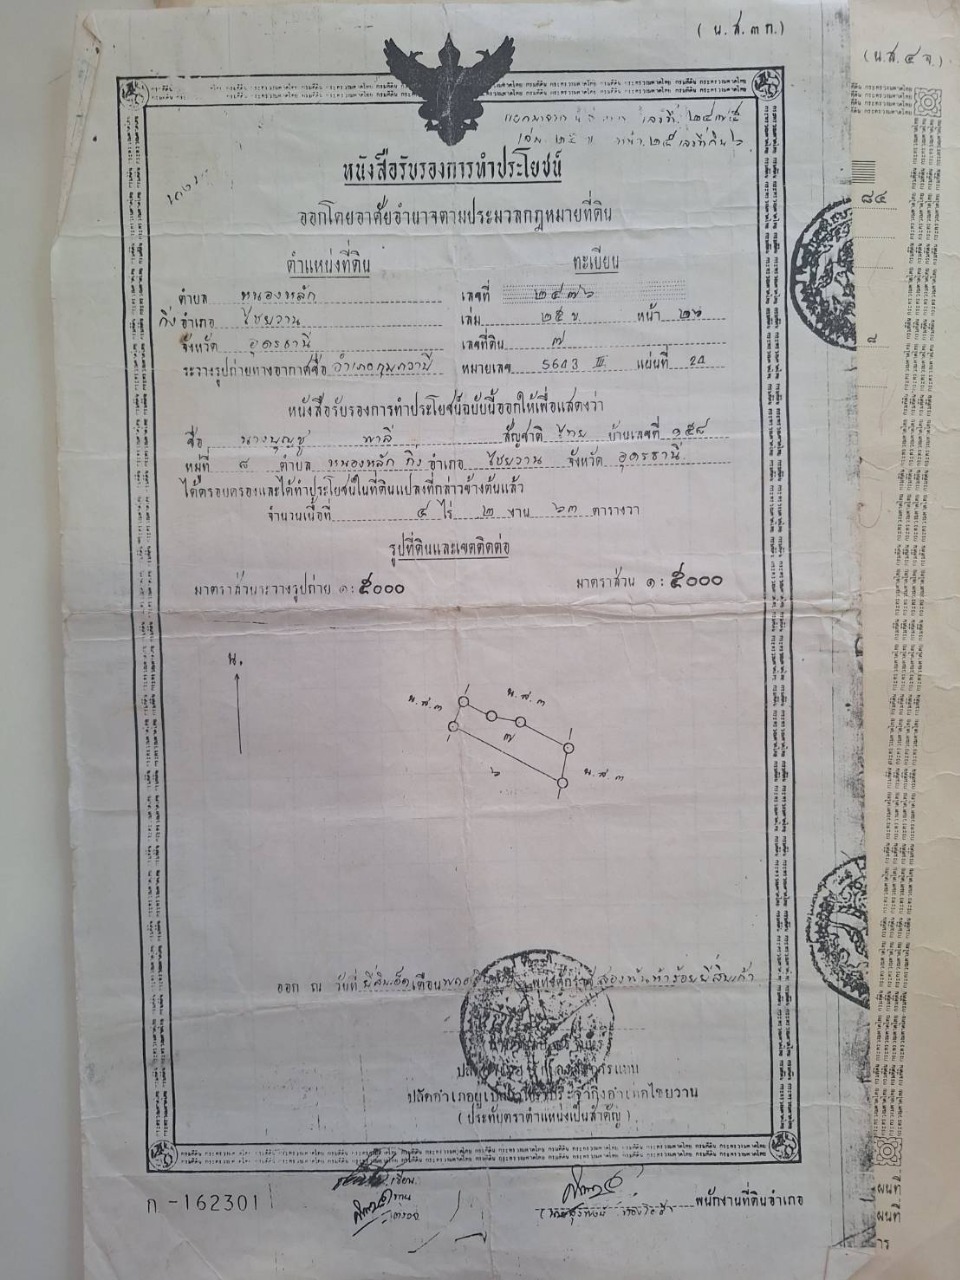 ( น.ส.๓ ก.)
(น.ส.๔ จ.)
เลขที่ ๒๔๗๕
เล่ม ๒๕ ข หน้า ๒๕ เลขที่ดิน ๖
หนังสือรับรองการทำประโยชน์
ออกโดยอาศัยอำนาจตามประมวลกฎหมายที่ดิน
ตำแหน่งที่ดิน ทะเบียน
ตำบล หนองหลัก เลขที่ ๒๔๗๖
กิ่งอำเภอ ไชยวาน เล่ม ๒๕ ข. หน้า ๒๖
จังหวัด อุดรธานี เลขที่ดิน ๗
ระวางรูปถ่ายทางอากาศชื่อ อำเภอกุมภวาปี หมายเลข 5643 III แผ่นที่ 24
หนังสือรับรองการทำประโยชน์ฉบับนี้ออกให้เพื่อแสดงว่า
ชื่อ นางบุญชู พาลี สัญชาติ ไทย บ้านเลขที่ ๑๕๘
หมู่ที่ ๘ ตำบล หนองหลัก กิ่งอำเภอ ไชยวาน จังหวัด อุดรธานี
ได้ครอบครองและได้ทำประโยชน์ในที่ดินแปลงที่กล่าวข้างต้นแล้ว
จำนวนเนื้อที่ ๔ ไร่ ๒ งาน ๖๓ ตารางวา
รูปที่ดินและเขตติดต่อ
มาตราส่วนระวางรูปถ่าย ๑: ๕๐๐๐ มาตราส่วน ๑: ๕๐๐๐
น.
น.ส.๓ น.ส.๓
๗
๖ น.ส.๓
ออก ณ วันที่ ยี่สิบเอ็ด เดือน พุทธศักราช สองพันห้าร้อยยี่สิบเก้า
ปลัดอำเภอผู้เป็นหัวหน้าประจำกิ่งอำเภอไชยวาน
( ประทับตราตำแหน่งเป็นสำคัญ )
เขียน
ทาน
ตรวจ
พนักงานที่ดินอำเภอ
ก -162301